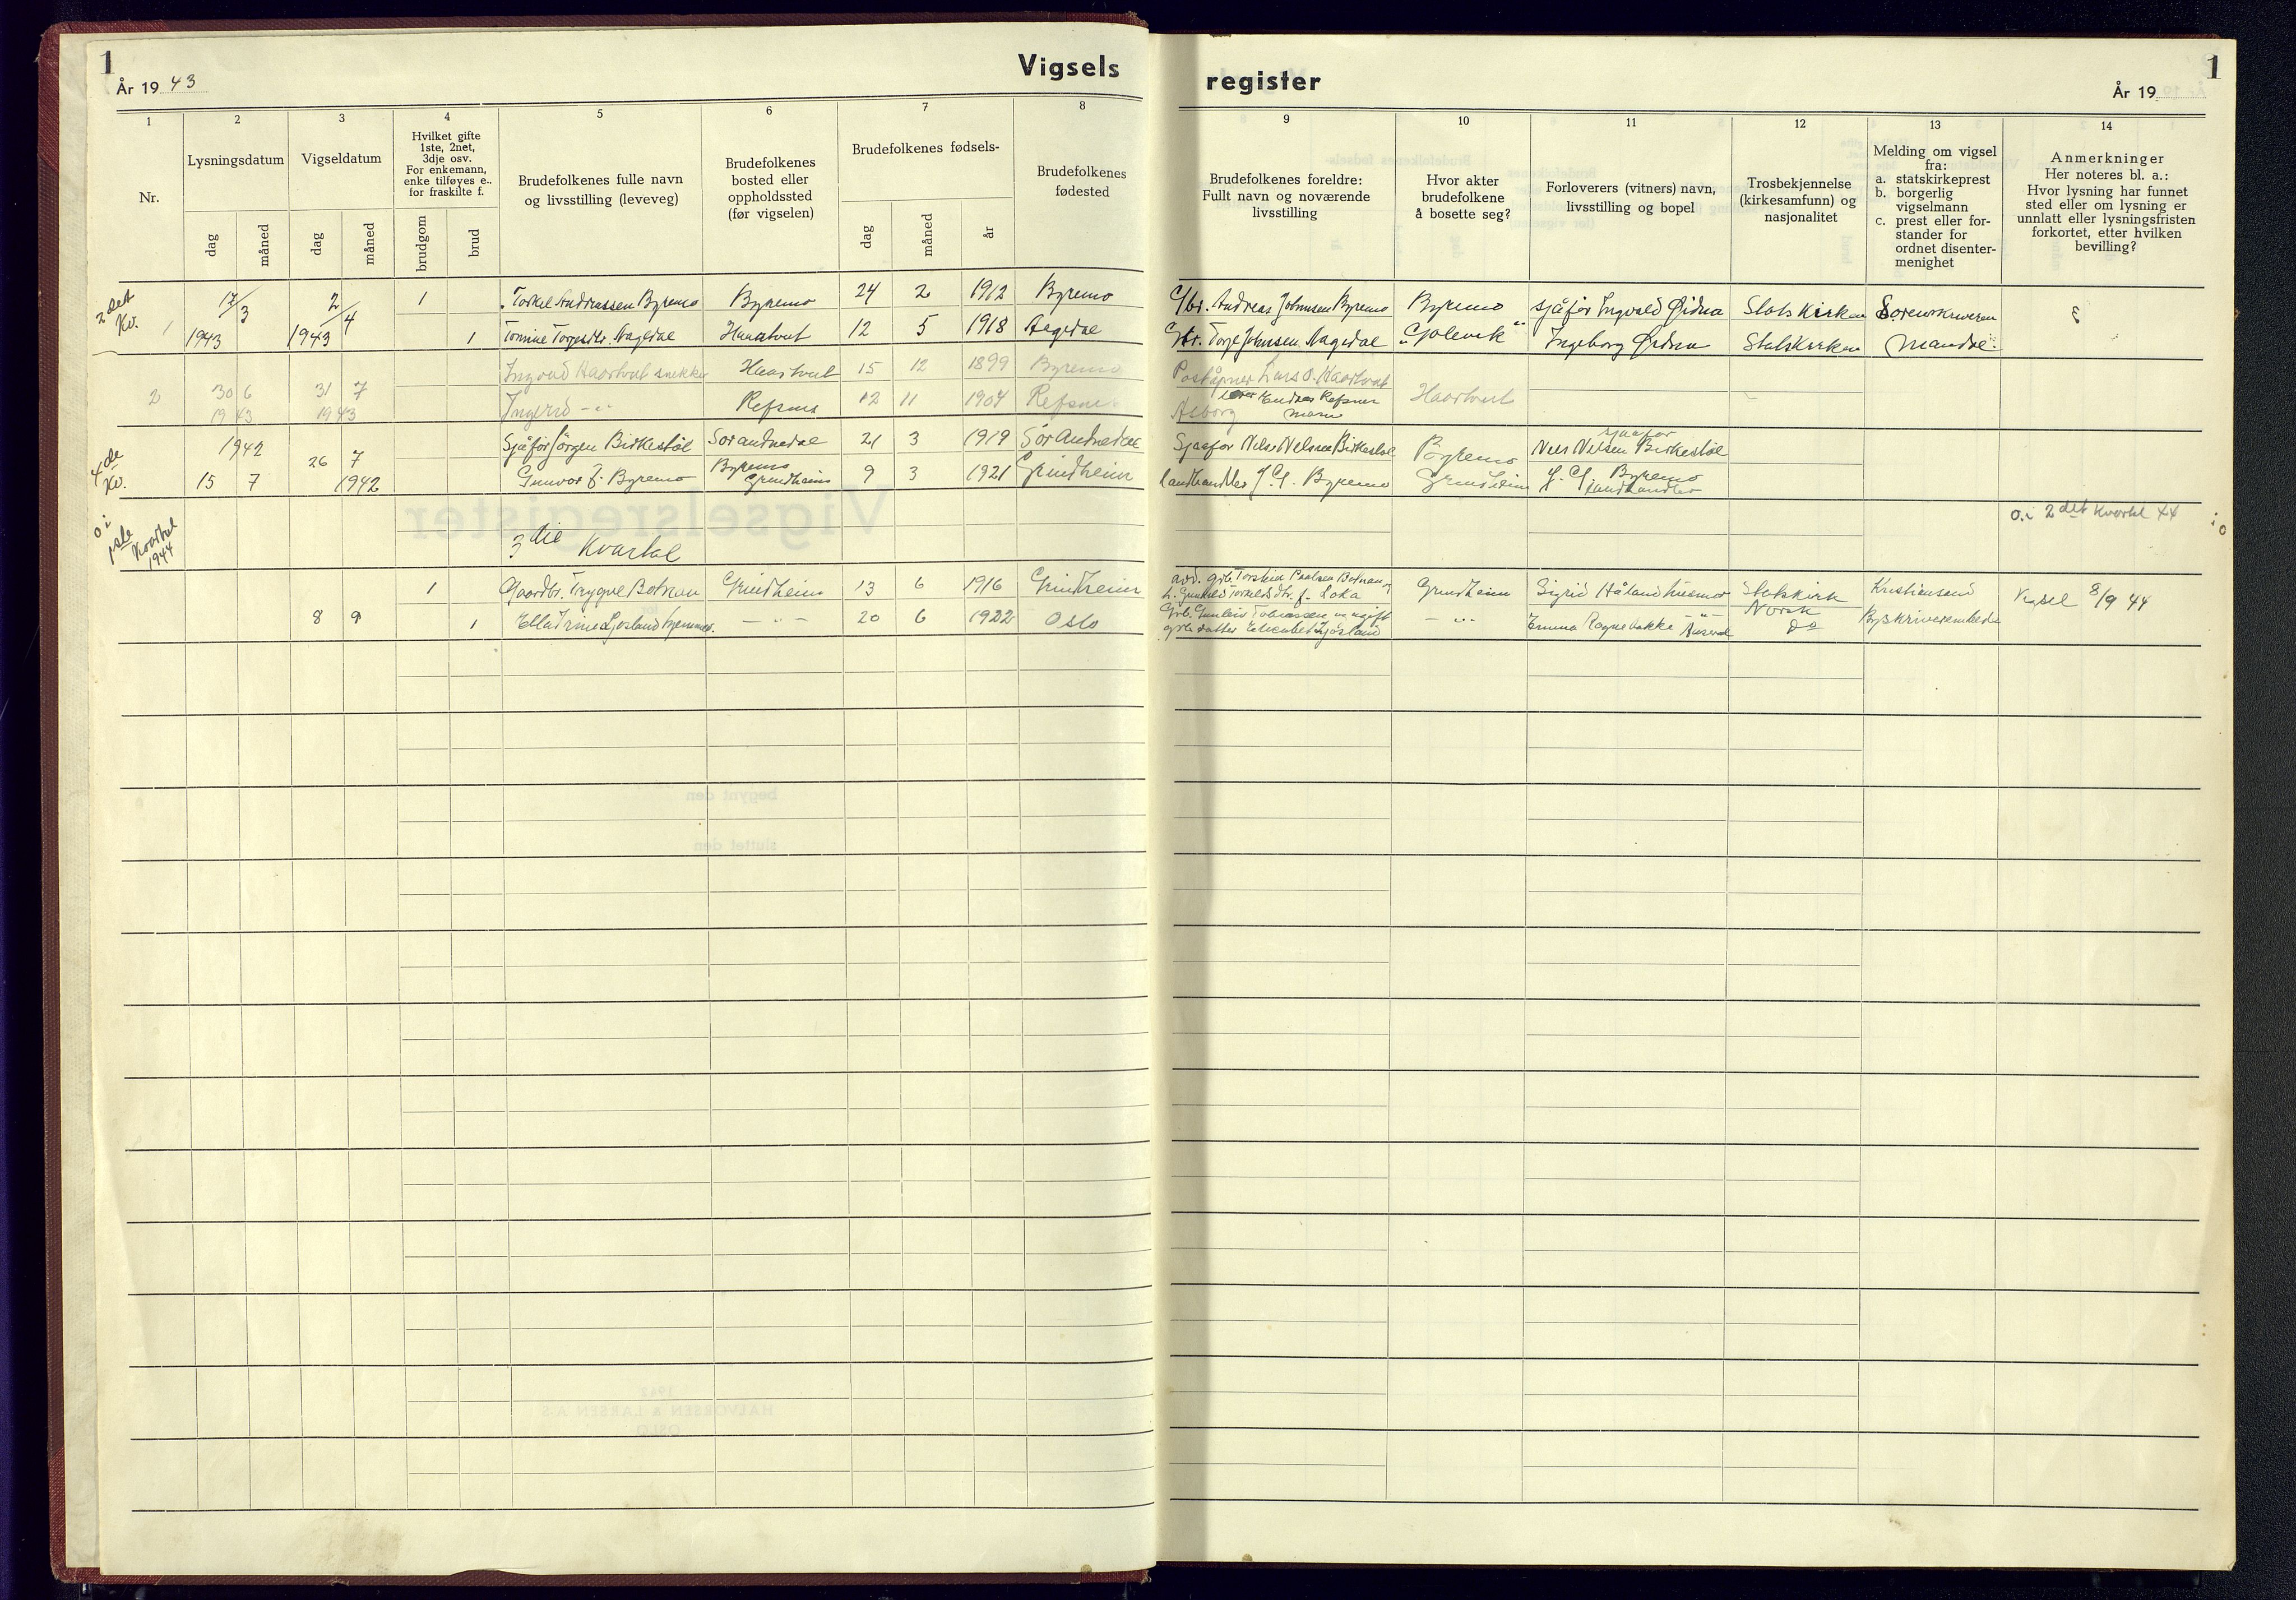 1
År 19 43
Vigsels
register
1
År 19
1
2
3
4
5
6
7
8
9
10
11
12
13
14
Nr.
Lysningsdatum
dag
måned
Vigseldatum
dag
måned
Hvilket gifte
1ste, 2net,
3dje osv.
For enkemann,
enke tilføyes e..
for fraskilte f.
brudgom
brud
Brudefolkenes fulle navn
og livsstilling (leveveg)
Brudefolkenes
bosted eller
oppholdssted
(før vigselen)
Brudefolkenes fødsels-
dag
måned
år
Brudefolkenes
fødested
Brudefolkenes foreldre:
Fullt navn og noværende
livsstilling
Hvor akter
brudefolkene
å bosette seg?
Forloverers (vitners) navn,
livsstilling og bopel
Trosbekjennelse
(kirkesamfunn) og
nasjonalitet
Melding om vigsel
fra:
a. statskirkeprest
b. borgerlig
vigselmann
c. prest eller for-
stander for
ordnet disenter-
menighet
Anmerkninger
Her noteres bl. a.:
Hvor lysning har funnet
sted eller om lysning er
unnlatt eller lysningsfristen
forkortet, etter hvilken
bevilling?
2det Kv.
1
17/3 1943
2/4 1943
1
Torkel Andreassen Byremo
Byremo
24 2 1912
Byremo
Gbr. Andreas Johnsen Byremo
Byremo
sjåfør Ingvald Øidna
Stats Kirken
Sorenskriveren
1
Tomine Torgesdtr. Aagedal
Haaatveit
12 5 1918
Aagedal
Gbr. Torje Jensen Aagedal
Ingeborg Øidna
StatsKirken
Mandal.
2
30 6 1943
31 7 1943
Ingvald Haartveit snekker
Haartveit
15 12 1899
Byremo
Poståpner Lars O. Haartveit
Haartveit
Ingerid
Refsnes
12 11 1904
Refsnes
Asborg
4de Kv.
1942
15 7
26 7
1942
Sjåfør Jörgen Birkestöl
Sör Audnedal
21 3 1919
Sör Audnedal
Sjaafør Nils Nelsen Birkestöl
Byremo
sjaafør
Nils Nelsen Birkestöl
Gunvor J. Byremo
Byremo
Grindheim
9 3 1921
Grindheim
landhandler J. G. Byremo
Grindheim
J. G. Byremo
landhandler
0 i
1ste
Kvartal
1944
3die Kvartal
0. i 2det Kvartal 44
8 9
1
Gaardbr. Trygve Botnan
Grindheim
13 6 1916
Grindheim
Grindheim
Sigrid Håland husmor
Statskirk
Norsk
Kristiansand
Vigsel 8/9 44
1
Ella Irine Ljosland hjemmev.
— " —
20 6 1922
Oslo
— " —
Emma Ragne Bakke
do
Byskriverembede